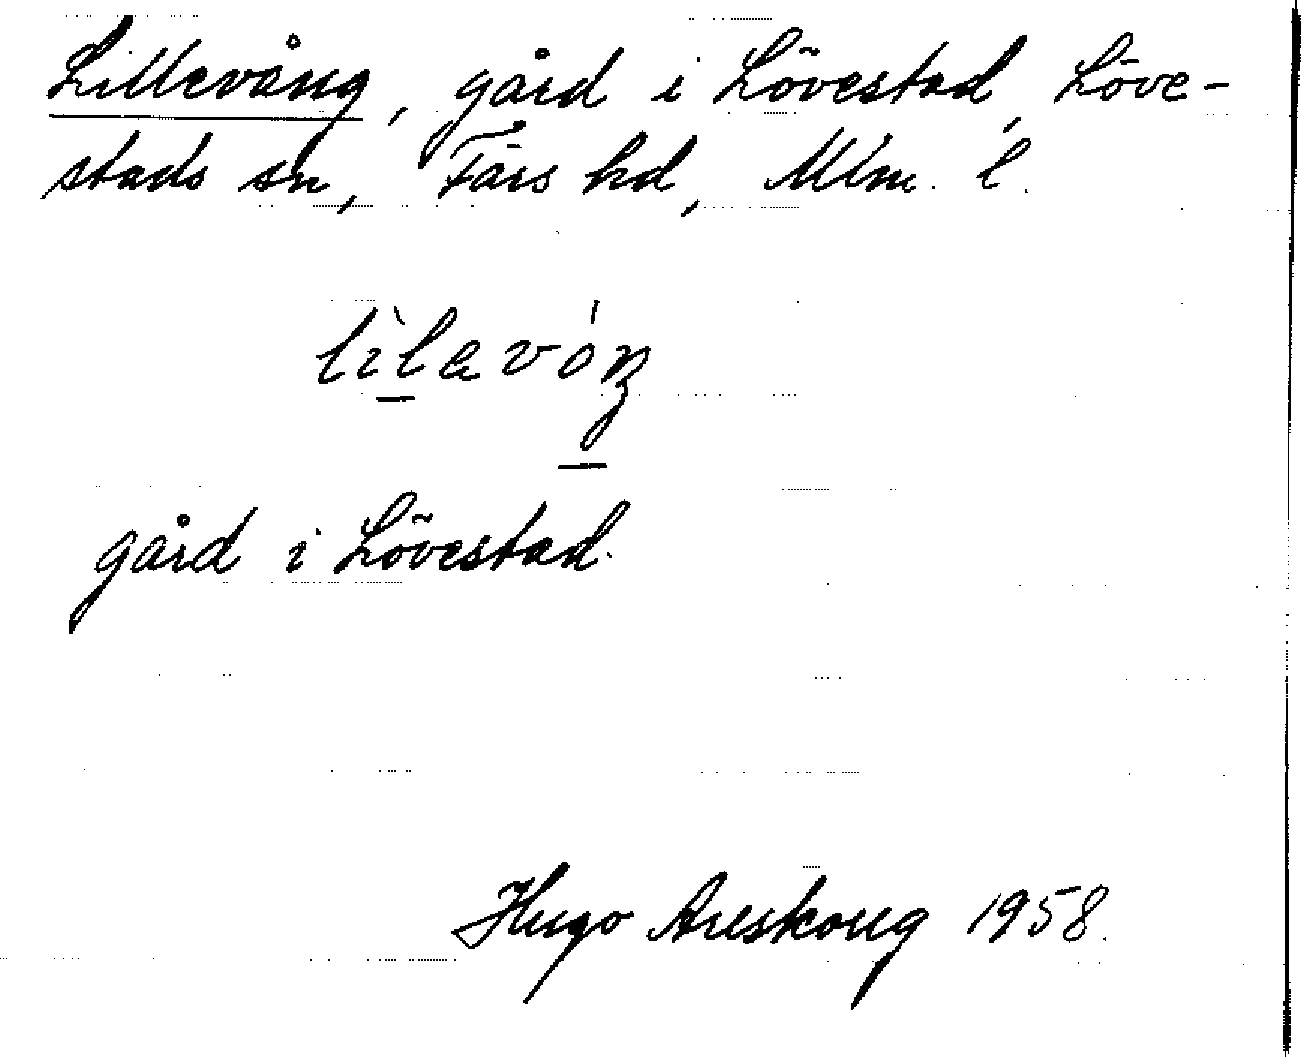 Lillevång, gård i Lövestad, Löve-
stads sn, Färs hd, Mlm. l.
lìlavóŋ
gård i Lövestad.
Hugo Areskoug 1958.